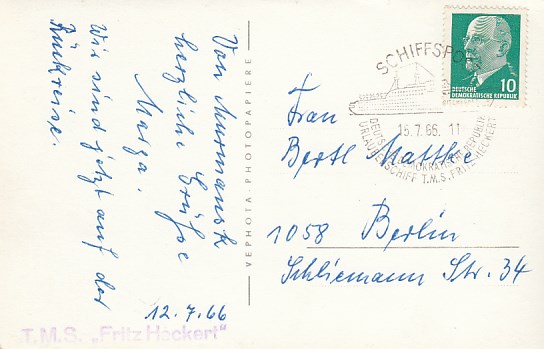 Von Murmansk
herzliche Grüße
Marga.
Wir sind jetzt auf der
Rückreise.
12.7.66
T.M.S. „Fritz Heckert"
VEPHOTA PHOTOPAPIERE
SCHIFFSPOST
16.7.66. 11
URLAUBERSCHIFF T.M.S. FRITZ HECKERT
10
DEUTSCHE
DEMOKRATISCHE REPUBLIK
Frau
Bertl Matthe
1058 Berlin
Schliemann Str. 34